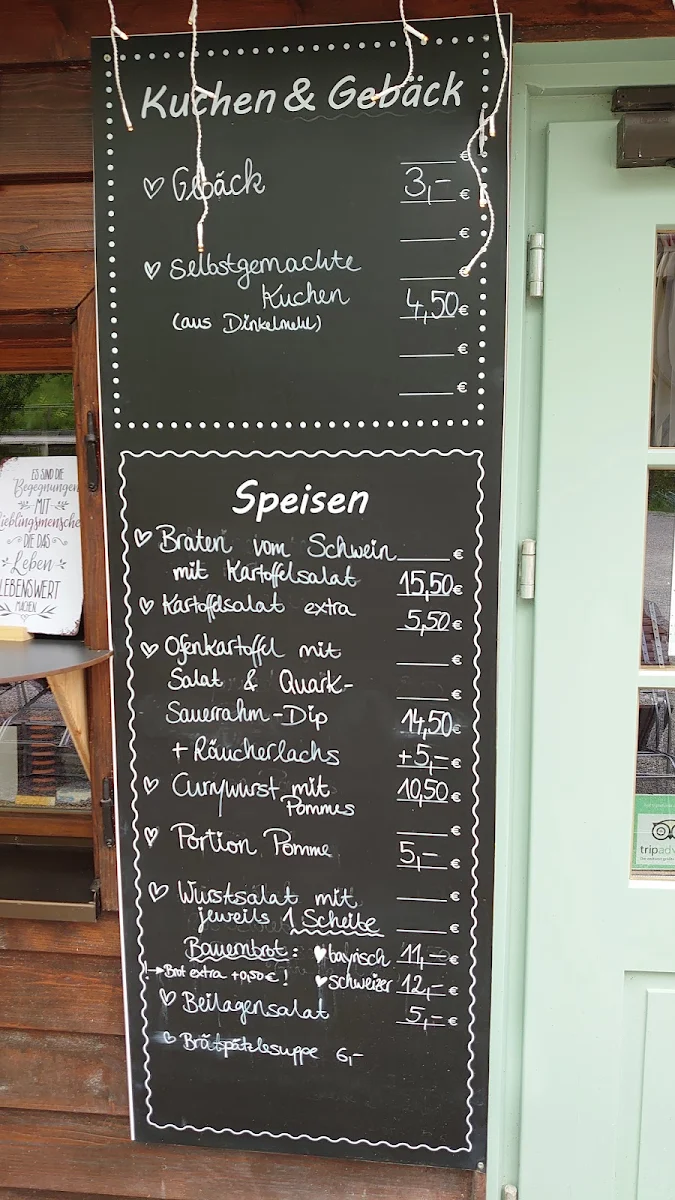 Kuchen & Gebäck
€
♡ Gebäck 3,- €
€
♡ Selbstgemachte €
Kuchen 4,50€
(aus Dinkelmehl)
€
€
Speisen
♡ Braten vom Schwein €
mit Kartoffelsalat 15,50€
♡ Kartoffelsalat extra 5,50€
♡ Ofenkartoffel mit €
Salat & Quark- €
Sauerrahm-Dip 14,50€
+ Räucherlachs +5,- €
♡ Currywurst mit 10,50€
Pommes
€
♡ Portion Pomme 5,- €
♡ Wurstsalat mit €
jeweils 1 Scheibe €
Bauernbrot: ♥bayrisch 11,- €
→Brot extra +0,50€! ♥schweizer 12,- €
♡ Beilagensalat 5,- €
♡ Brätspätzlesuppe 6,-
ES SIND DIE
Begegnungen
MIT
Lieblingsmensche
DIE DAS
Leben
LEBENSWERT
MACHEN.
tripadv